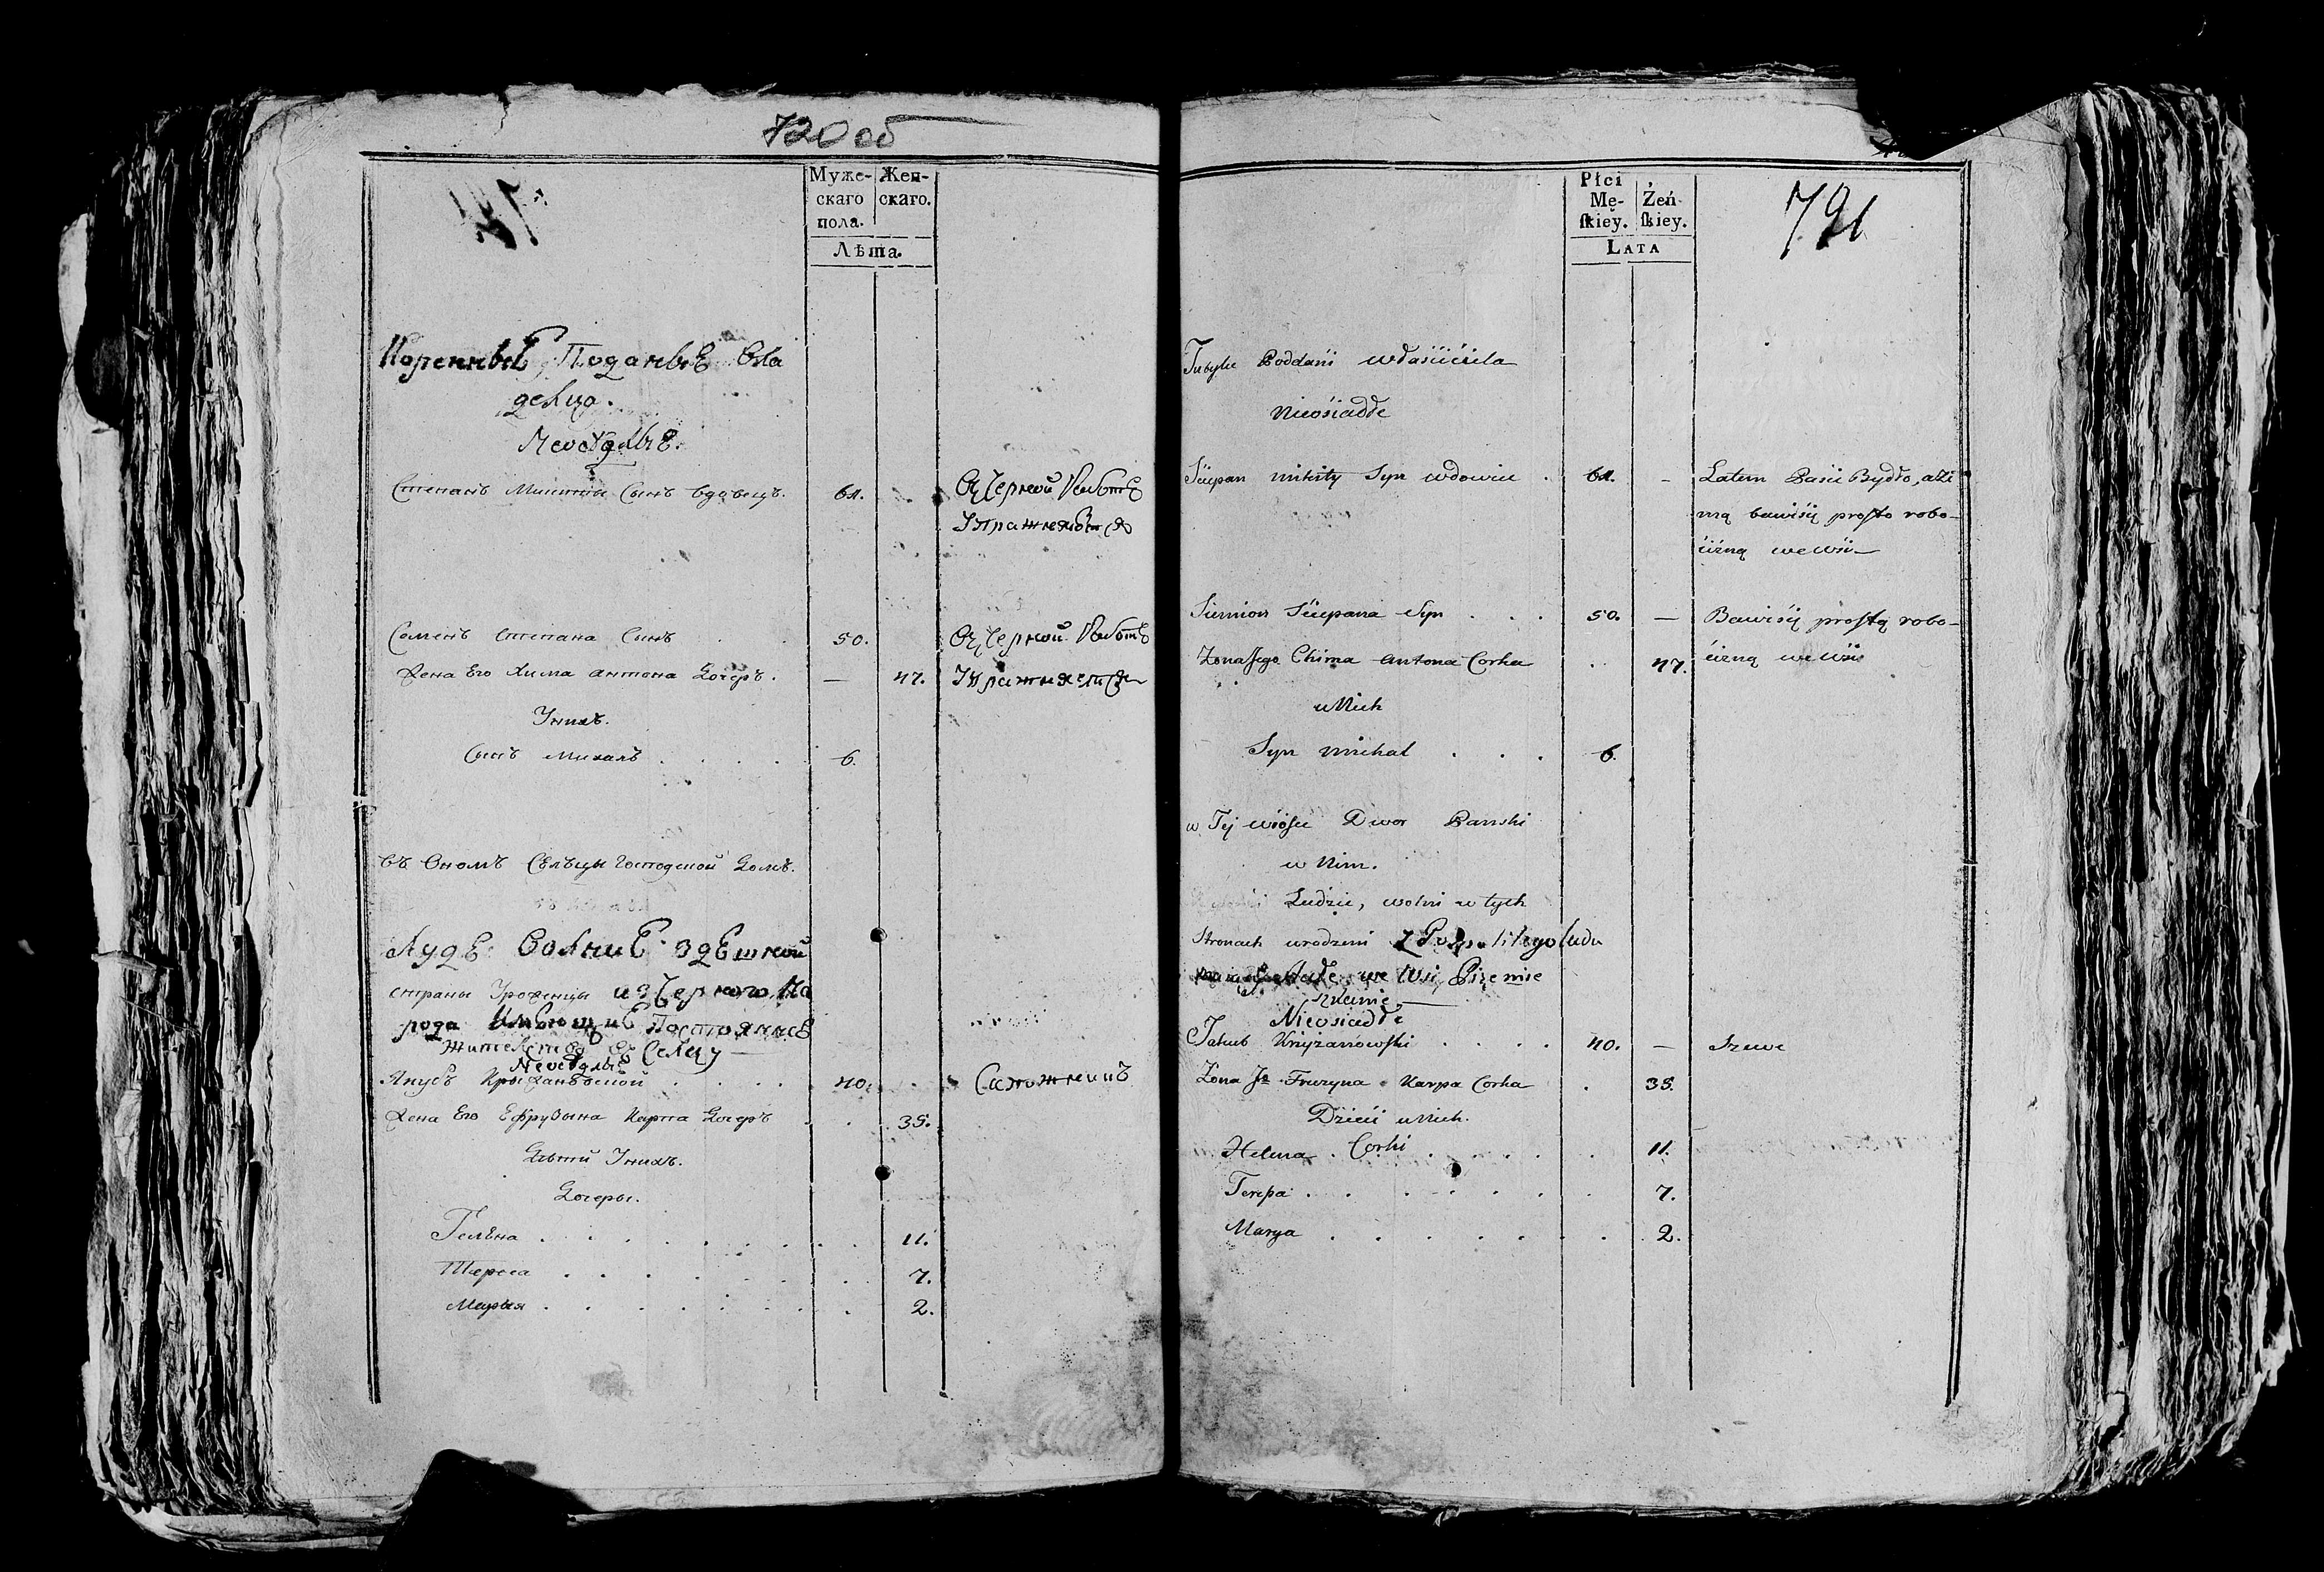 720 об
Муже- Жен-
скаго скаго.
пола.
Лѣта.
Коренные Поданые Вла
делца.
Неоседлые.
Степанъ Микиты Сынъ вдовецъ. 61. Въ Черной Работе
Упражняется
Семенъ Степана Сынъ 50. Въ Черной Работе
Жена Его Хима антона Дочеръ. — 47. Упражняется
У нихъ.
Сынъ Михалъ 6.
Въ Ономъ Селъцы Господской Домъ.
Люде Волние здешней
страны Уроженцы из Черного На
рода Имеющие Постоянное
жителство въ Селцу —
Неоседлые
Якубъ Крыжановской 40. Сапожникъ
Жена Его Ефрузына Карпа Дочеръ 35.
Дѣти У нихъ.
Дочеры.
Гелѣна 11.
Тереса 7.
Марыя 2.
Płci
Mę- Żeń-
ſkiey. ſkiey.
LATA
721
Poddani własciciela
Nieosiadłe
Sciepan mikity Syn wdowiec 61. — Latem Pasie Bydło, a zi
mą bawi się prosto robo-
cizną we wsi —
Siemion Sciepana Syn 50. — Bawi się prostą robo-
Zona Jego Chima Antona Corka 47. cizną we wsi
u Nich
Syn michał 6.
w Tej wiosce Dwor Panski
w Nim.
Ludzie, wolni w tych
Stronach urodzeni z Pospolitego ludu
we Wsi
Nieosiadłe
Jakub Krzyżanowski 40. — Szewc
Zona Je Fruzyna Karpa Corka 35.
Dzieci u Nich.
Helena Corki 11.
Teresa 7.
Marya 2.